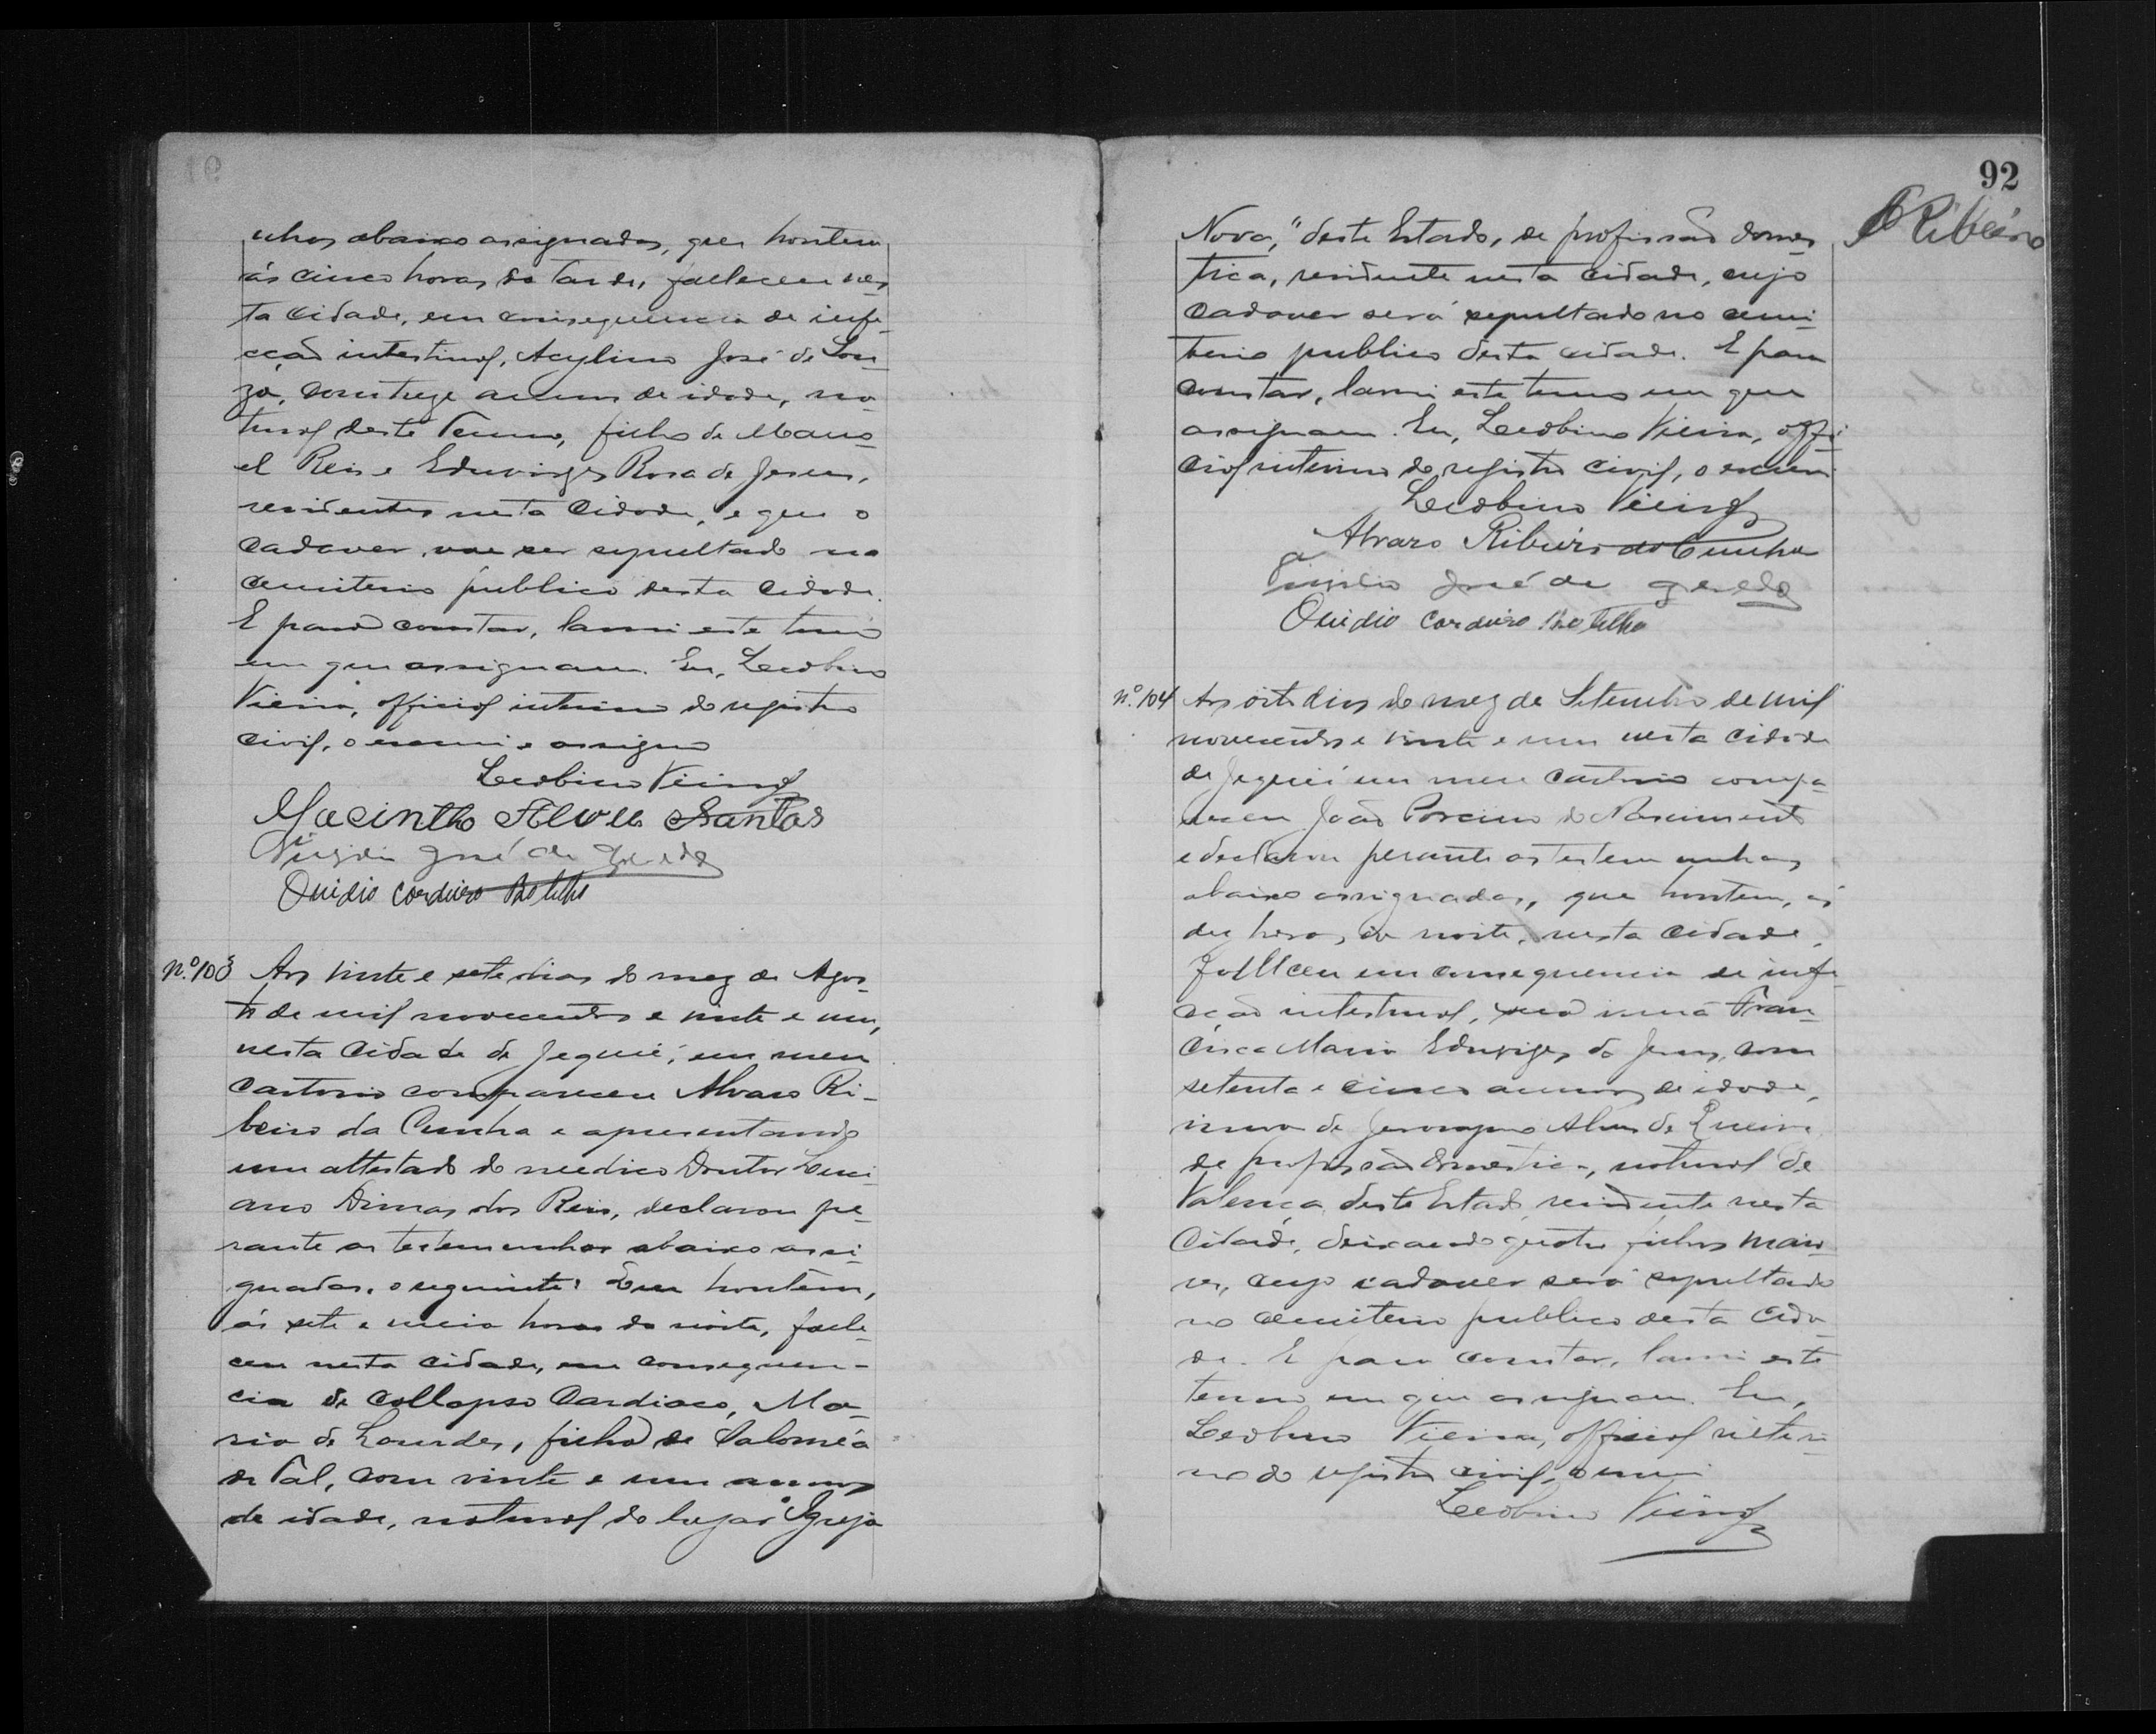 nhas abaixo assignadas, que hontem
ás cinco horas da tarde, falleceu nes
ta cidade, em consequencia de infe
cção intestinal, Acylino José de Sou
za, com treze annos de idade, na
tural deste Termo, filho de Mano
el Reis e Eduvirges Rosa de Jesus,
residentes nesta Cidade, e que o
cadaver vae ser sepultado no
cemiterio publico desta cidade.
E para constar, lavrei este termo
em que assignam. Eu, Leobino
Vieira, official interino do registro
civil, o escrevi e assigno
Leobino Vieira
Jacintho Alves Santos
José de
Ouidio Cordeiro Botelho
N.º 103 Aos vinte e sete dias do mez de Agos-
to de mil novecentos e vinte e um,
nesta Cidade de Jequié, em meu
Cartorio compareceu Alvaro Ri-
beiro da Cunha e apresentando
um attestado do medico Doutor Luci
ano Dimas dos Reis, declarou pe-
rante as testemunhas abaixo assi-
gnadas, o seguinte: Que hontem,
ás sete e meia horas da noite, falle-
ceu nesta cidade, em consequen-
cia de collapso Cardiaco, Ma-
ria de Lourdes, filha de Saloméa
de Tal, com vinte e um annos
de idade, natural do lugar "Igreja
92
A Ribeiro
Nova," deste Estado, de profissão domes
tica, residente nesta cidade, cujo
cadaver será sepultado no cemi-
terio publico desta cidade. E para
constar, lavrei este termo em que
assignam. Eu, Leobino Vieira, offi
cial interino do registro civil, o escrevi
Leobino Vieira
Alvaro Ribeiro da Cunha
José de
Ouidio Cordeiro Botelho
N.º 104 Aos oito dias do mez de Setembro de mil
novecentos e vinte e um nesta cidade
de Jequié em meu cartorio compa-
receu João Porcino do Nascimento
e declarou perante as testemunhas
abaixo assignadas, que hontem, ás
dez horas da noite, nesta cidade,
falleceu em consequencia de infe
cção intestinal, sua irmã Fran-
cisca Maria Eduviges de Jesus, com
setenta e cinco annos de idade,
viuva de Jeronymo Alves de
de profissão domestica, natural de
Valença, deste Estado, residente nesta
Cidade, deixando quatro filhos maio
res, cujo cadaver será sepultado
no cemiterio publico desta cida
de. E para constar, lavrei este
termo em que assignam. Eu,
Leobino Vieira, official interi
no do registro civil, o escrevi
Leobino Vieira